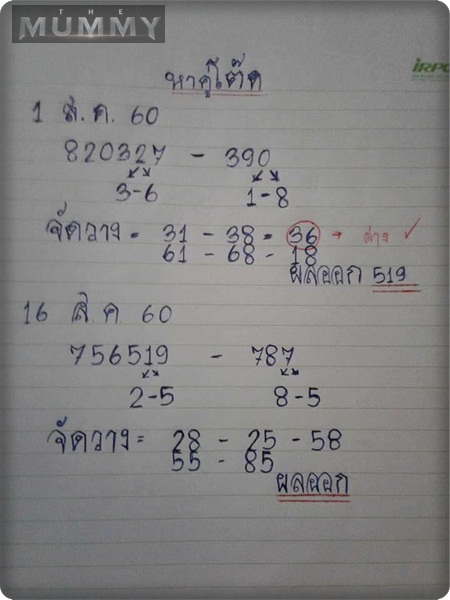 THE
MUMMY
IRPC
หาคู่โต๊ด
1 ส.ค. 60
820327 - 390
3-6 1-8
จัดวาง = 31 - 38 = 36 → ล่าง ✓
61 - 68 - 18
ผลออก 519
16 ส.ค 60
756519 - 787
2-5 8-5
จัดวาง = 28 - 25 - 58
55 - 85
ผลออก